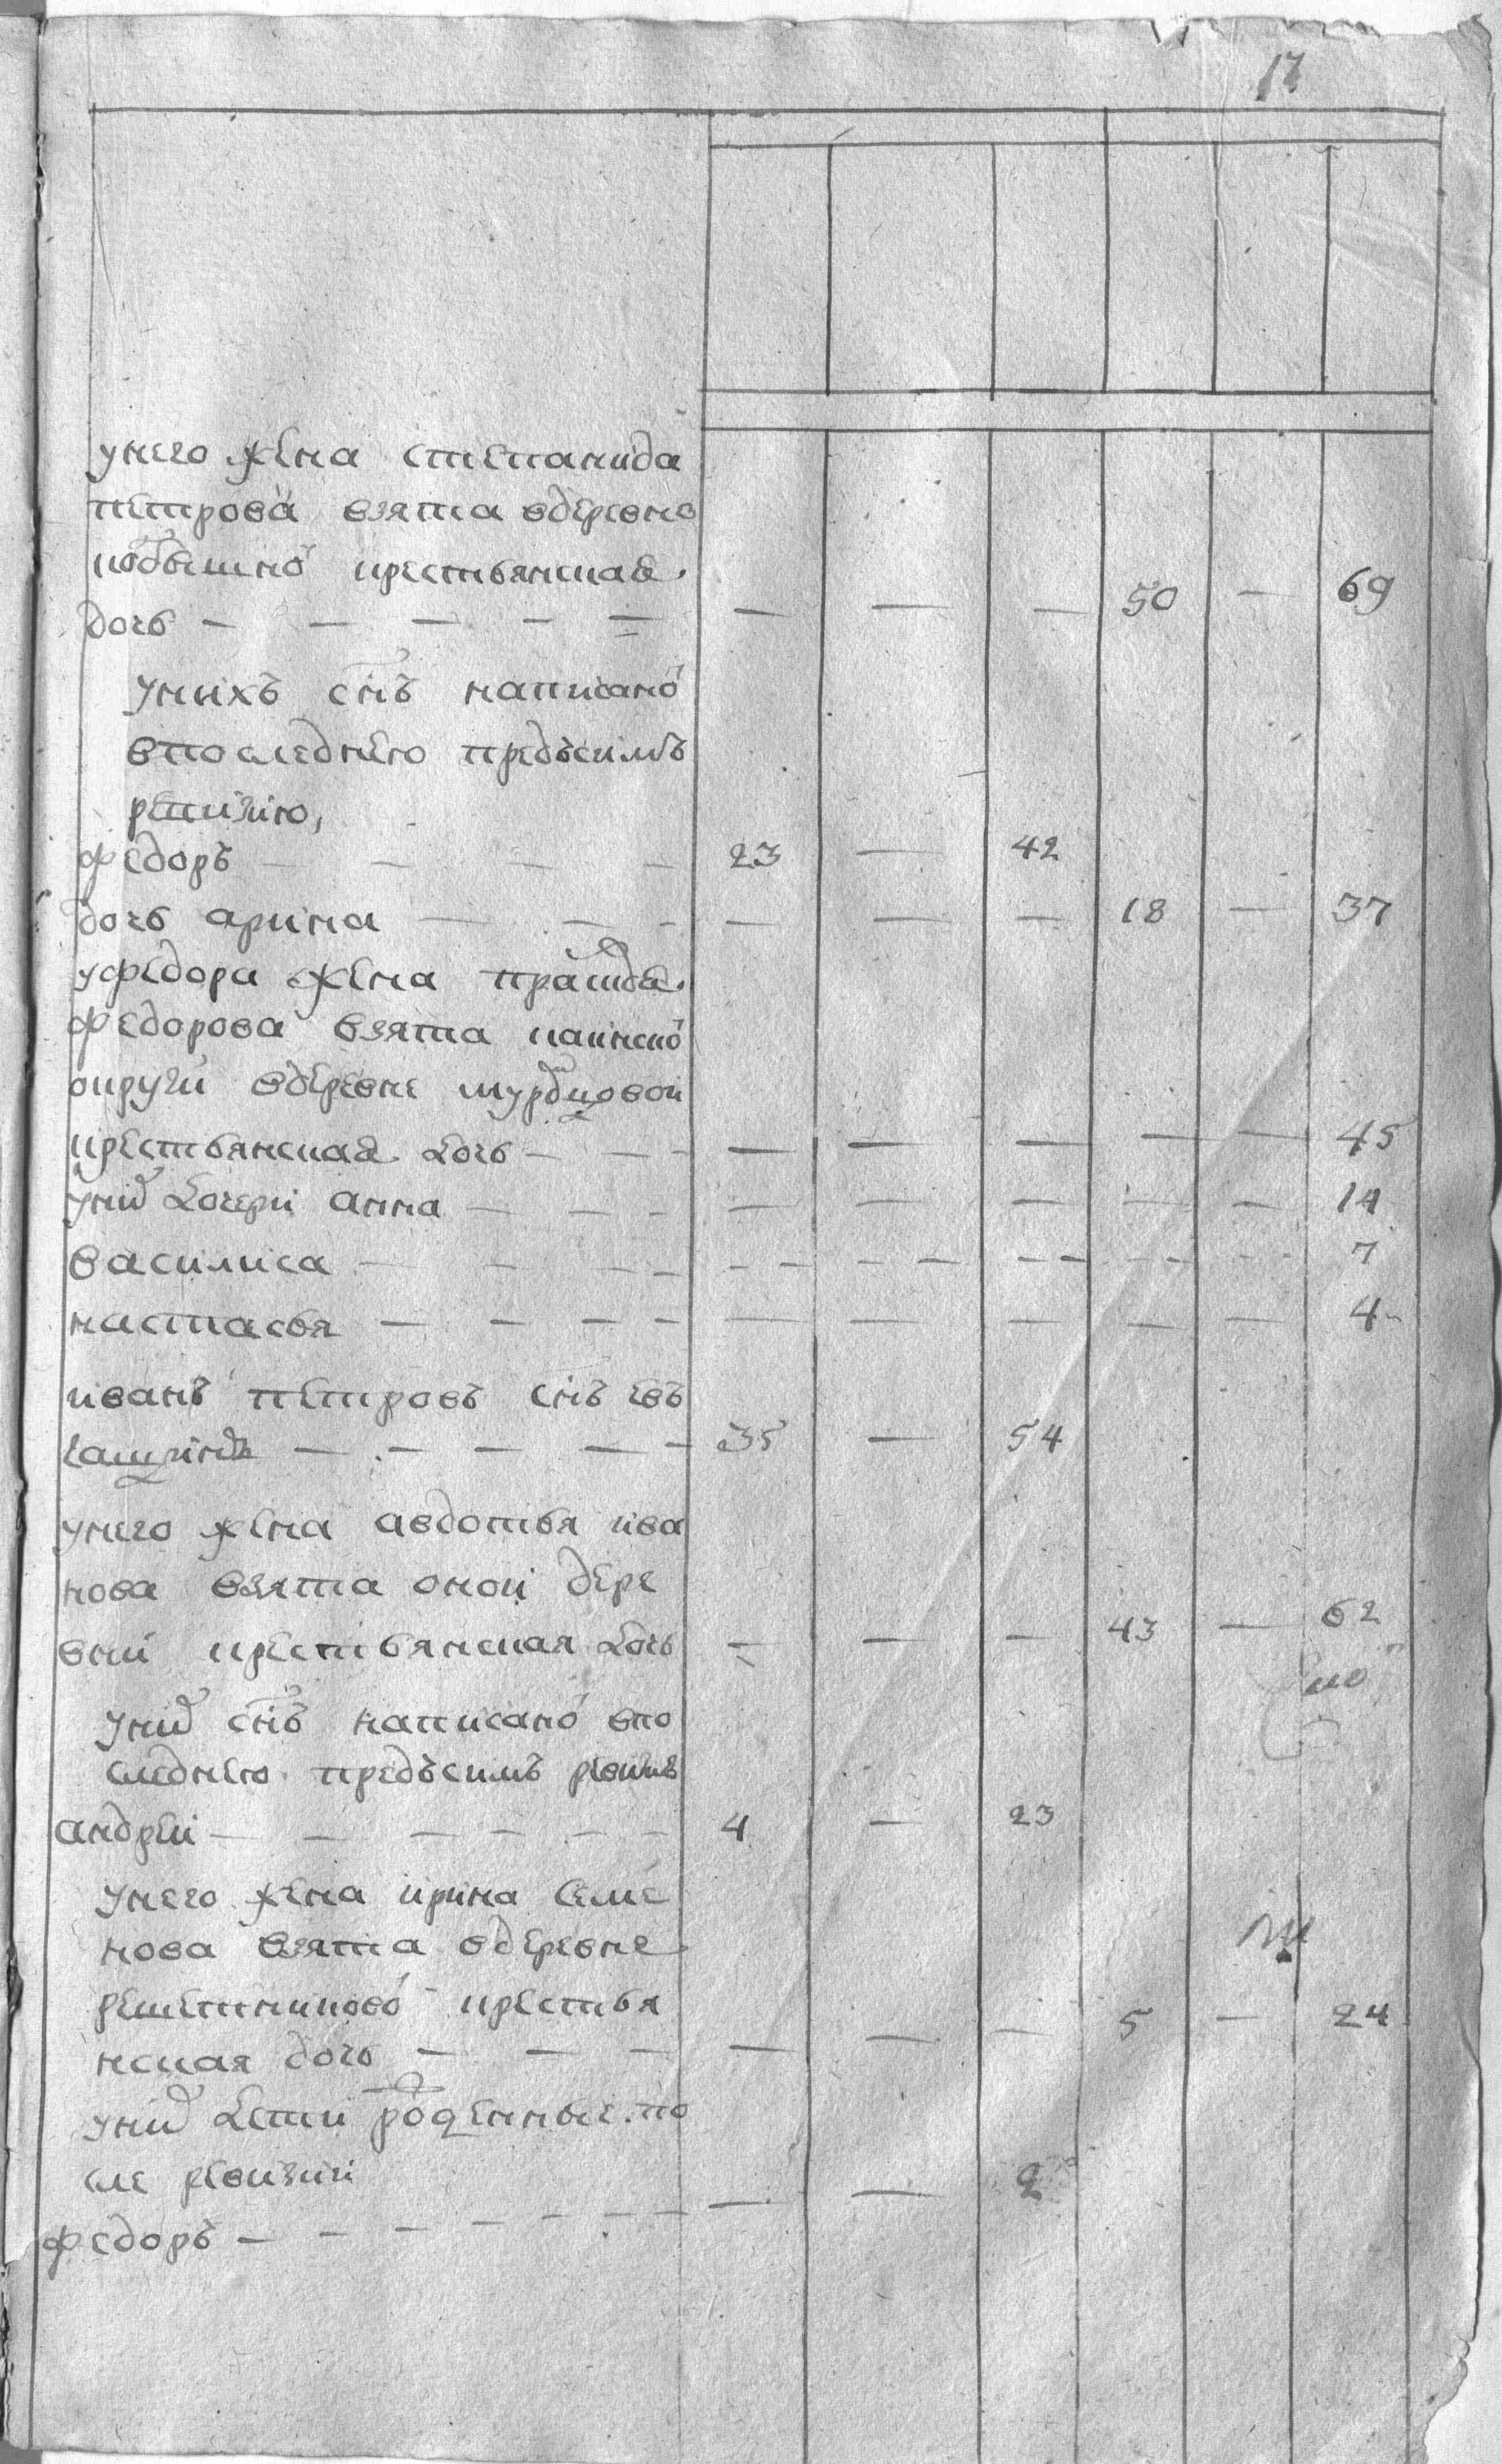 17
унего жена степанида
петрова взята вдеревне
крестьянская
дочь — — — — — — — — 50 — 69
унихъ снъ написано
впоследнею предъсимъ
ревизию,
федоръ — — — — 23 — 42
дочь арина — — — — — — 18 — 37
уфедора жена
федорова взята
округи вдеревне
крестьянская дочь — — — — — — — — 45
уних дочери анна — — — — — — — — 14
василиса — — — — — — — — — 7
настасья — — — — — — — — — 4
иванъ петровъ снъ
— — — — — 35 — 54
унего жена авдотья ива
нова взята оной дере
вни крестьянская дочь — — — 43 — 62
уних снъ написано впо
следнею предъсимъ
андреи — — — — — — 4 — 23
унего жена ирина семе
нова взята вдеревне
решетниково крестья
нская дочь — — — — — — 5 — 24
уних дети рожденные по
сле ревизии
федоръ — — — — — — — — — 2